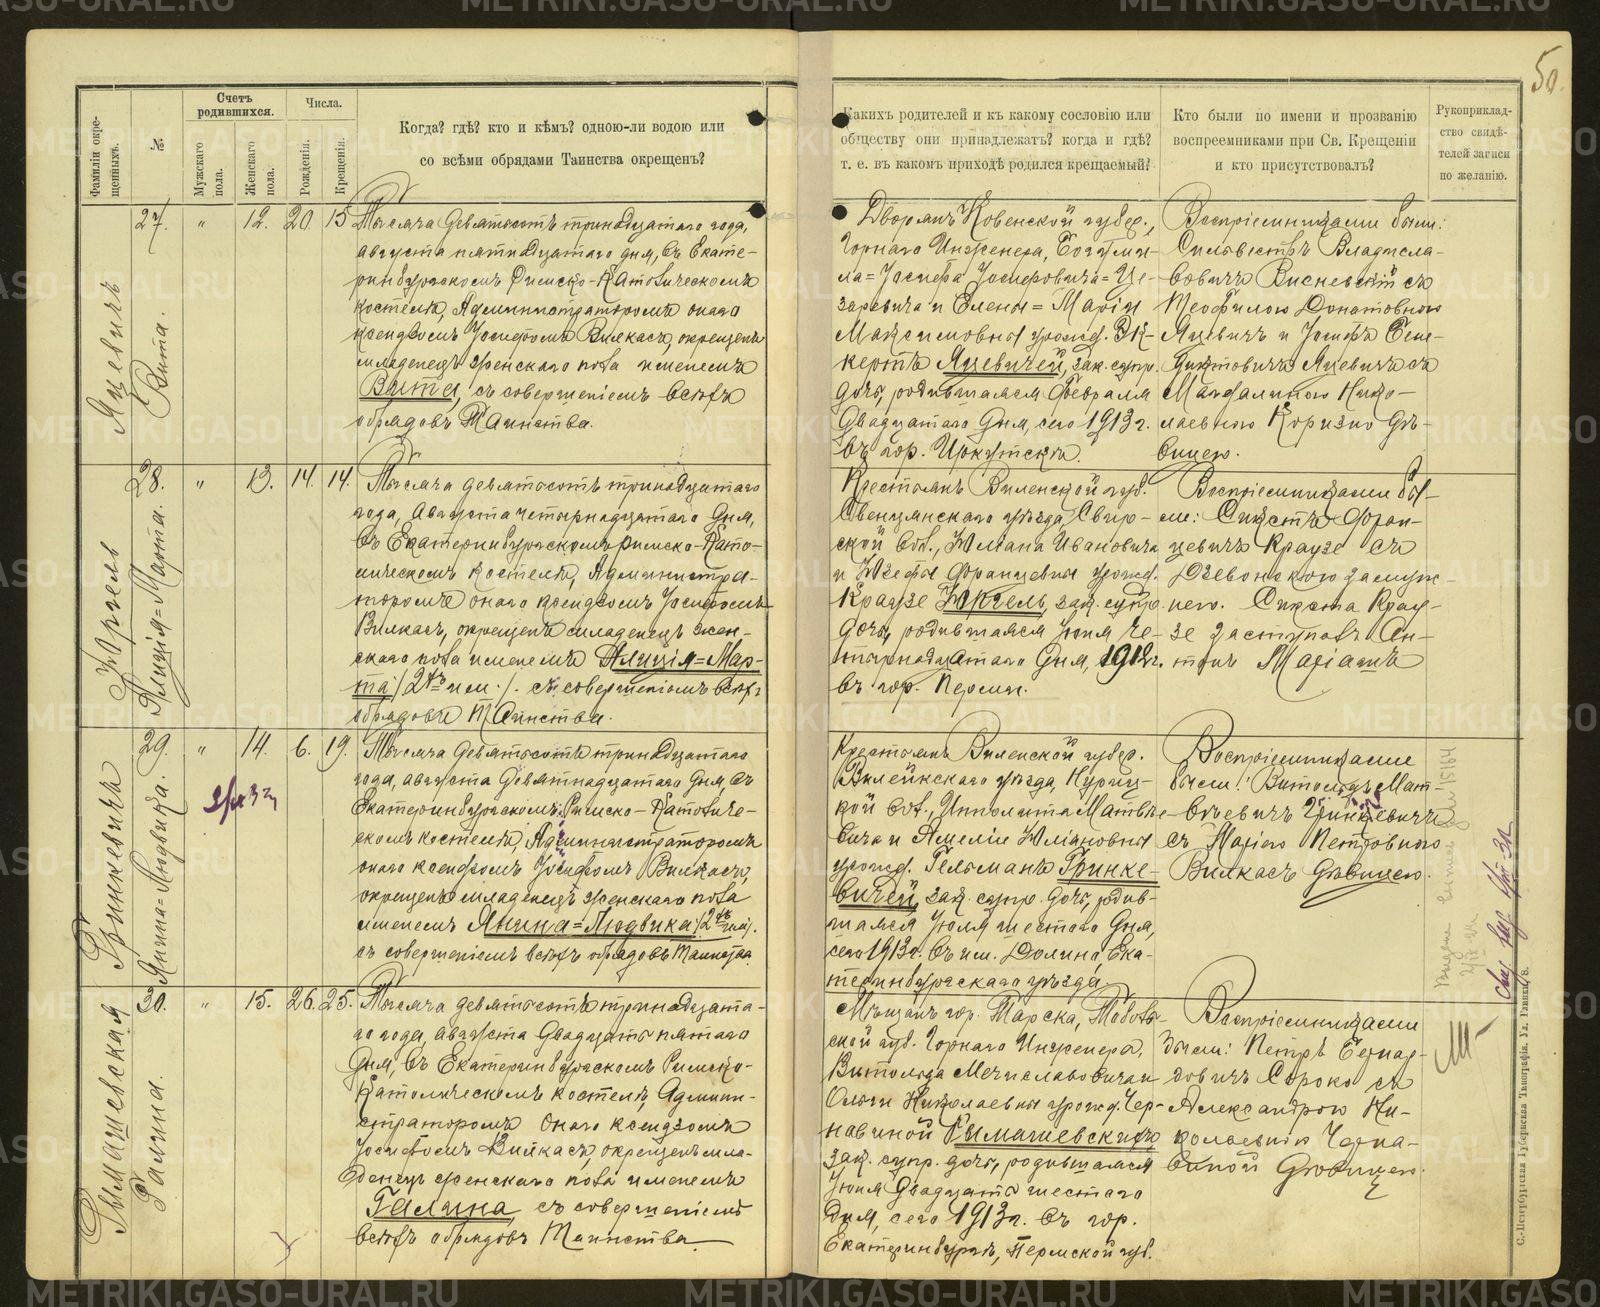 50.
Фамиліи окре-
щенныхъ.
№
Счетъ
родившихся.
Мужскаго
пола.
Женскаго
пола.
Числа.
Рожденія.
Крещенія.
Когда? гдѣ? кто и кѣмъ? одною-ли водою или
со всѣми обрядами Таинства окрещенъ?
Какихъ родителей и къ какому сословію или
обществу они принадлежатъ? когда и гдѣ?
т. е. въ какомъ приходѣ родился крещаемый?
Кто были по имени и прозванію
воспреемниками при Св. Крещеніи
и кто присутствовалъ?
Рукоприклад-
ство свидѣ-
телей записи
по желанію.
Яцевичъ
Вита.
27. " 12. 20 15
Тысяча девятьсотъ тринадцатаго года,
августа пятнадцатаго дня, въ Екате-
ринбургскомъ Римско-Католическомъ
костелѣ, Администраторомъ онаго
ксендзомъ Іосифомъ Вилкасъ, окрещенъ
младенецъ женскаго пола именемъ
Вита, съ совершеніемъ всѣхъ
обрядовъ Таинства.
Дворянъ Ковенской губер.,
Горнаго Инженера, Богуми-
ла=Іосифа Іосифовича=Це-
заревича и Елены=Маріи
Максимовны урожд. Эк-
кертъ Яцевичей, зак. супр.
дочь, родившаяся Февраля
двадцатаго дня, сего 1913 г.
въ гор. Иркутскѣ.
Воспріемниками были:
Сильвестръ Владисла-
вовичъ Висневскій съ
Теофилою Донатовною
Яцевичъ и Іосифъ Бене-
диктовичъ Яцевичъ съ
Магдалиною Нико-
лаевною Коризно дѣ-
вицею.
Юргель
Алиція=Марта.
28. " 13. 14. 14.
Тысяча девятьсотъ тринадцатаго
года, Августа четырнадцатаго дня,
въ Екатеринбургскомъ Римско-Като-
лическомъ костелѣ, Администра-
торомъ онаго ксендзомъ Іосифомъ
Вилкасъ, окрещенъ младенецъ жен-
скаго пола именемъ Алиція=Мар-
та /: 2хъ им. :/. съ совершеніемъ всѣхъ
обрядовъ Таинства.
Крестьянъ Виленской губ.
Свенцянскаго уѣзда, Свир-
ской вол., Юліана Ивановича
и Юзефы Францевны урожд.
Краузе Юргель, зак. супр.
дочь, родившаяся Іюля че-
тырнадцатаго дня, 1912 г.
въ гор. Перми.
Воспріемниками бы-
ли: Сикстъ Фран-
цевичъ Краузе съ
замуж-
нею. Сикста Крау-
зе заступалъ Ан-
тонъ
Гринкевичъ
Янина=Людвика.
29. " 14. 6. 19.
Тысяча девятьсотъ тринадцатаго
года, августа девятнадцатаго дня, въ
Екатеринбургскомъ Римско-Католиче-
скомъ костелѣ, Администраторомъ
онаго ксендзомъ Іосифомъ Вилкасъ,
окрещенъ младенецъ женскаго пола
именемъ Янина=Людвика /: 2хъ им :/.
съ совершеніемъ всѣхъ обрядовъ Таинства
Крестьянъ Виленской губер.
Вилейскаго уѣзда,
кой вол., Ипполита Матвѣе-
вича и Амеліи Юліановны
урожд. Гельманъ Гринке-
вичей, зак. супр. дочь, родив-
шаяся Іюля шестого дня,
сего 1913 г. въ им. Долина, Ека-
теринбургскаго уѣзда.
Воспріемниками
были: Витольдъ Мат-
вѣевичъ Гринкевичъ
съ Маріею Петровною
Вилкасъ дѣвицею.
Тымашевская
Галина.
30. " 15. 26. 25.
Тысяча девятьсотъ тринадцата-
го года, августа двадцать пятаго
дня, въ Екатеринбургскомъ Римско-
Католическомъ костелѣ, Админи-
страторомъ онаго ксендзомъ
Іосифомъ Вилкасъ, окрещенъ мла-
денецъ женскаго пола именемъ
Галина, съ совершеніемъ
всѣхъ обрядовъ Таинства
Мѣщанъ гор. Тарска, Тоболь-
ской губ. Горнаго Инженера,
Витольда Мечиславовича и
Ольги Николаевны урожд. Чер-
навиной Тымашевскихъ
зак. супр. дочь, родившаяся
Іюля двадцать шестого
дня, сего 1913 г. въ гор.
Екатеринбургѣ, Пермской губ.
Воспріемниками
были: Петръ Бернар-
довичъ Сороко съ
Александрою Ни-
колаевною Черна-
виной дѣвицею.
С.-Петербургская Губернская Типографія.
METRIKI.GASO-URAL.RU